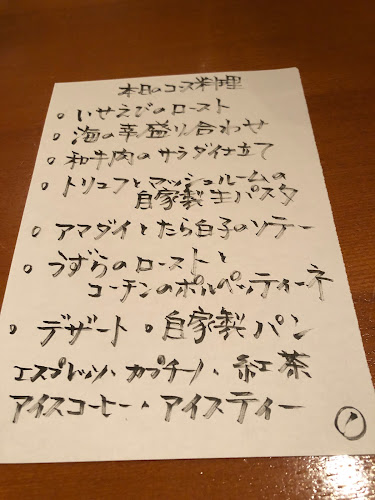 本日のコース料理
○ いせえびのロースト
○ 海の幸盛り合わせ
○ 和牛肉のサラダ仕立て
○ トリュフとマッシュルームの
自家製生パスタ
○ アマダイとたら白子のソテー
○ うずらのローストと
コーチンのポルペッティーネ
○ デザート ○ 自家製パン
エスプレッソ・カプチーノ・紅茶
アイスコーヒー・アイスティー